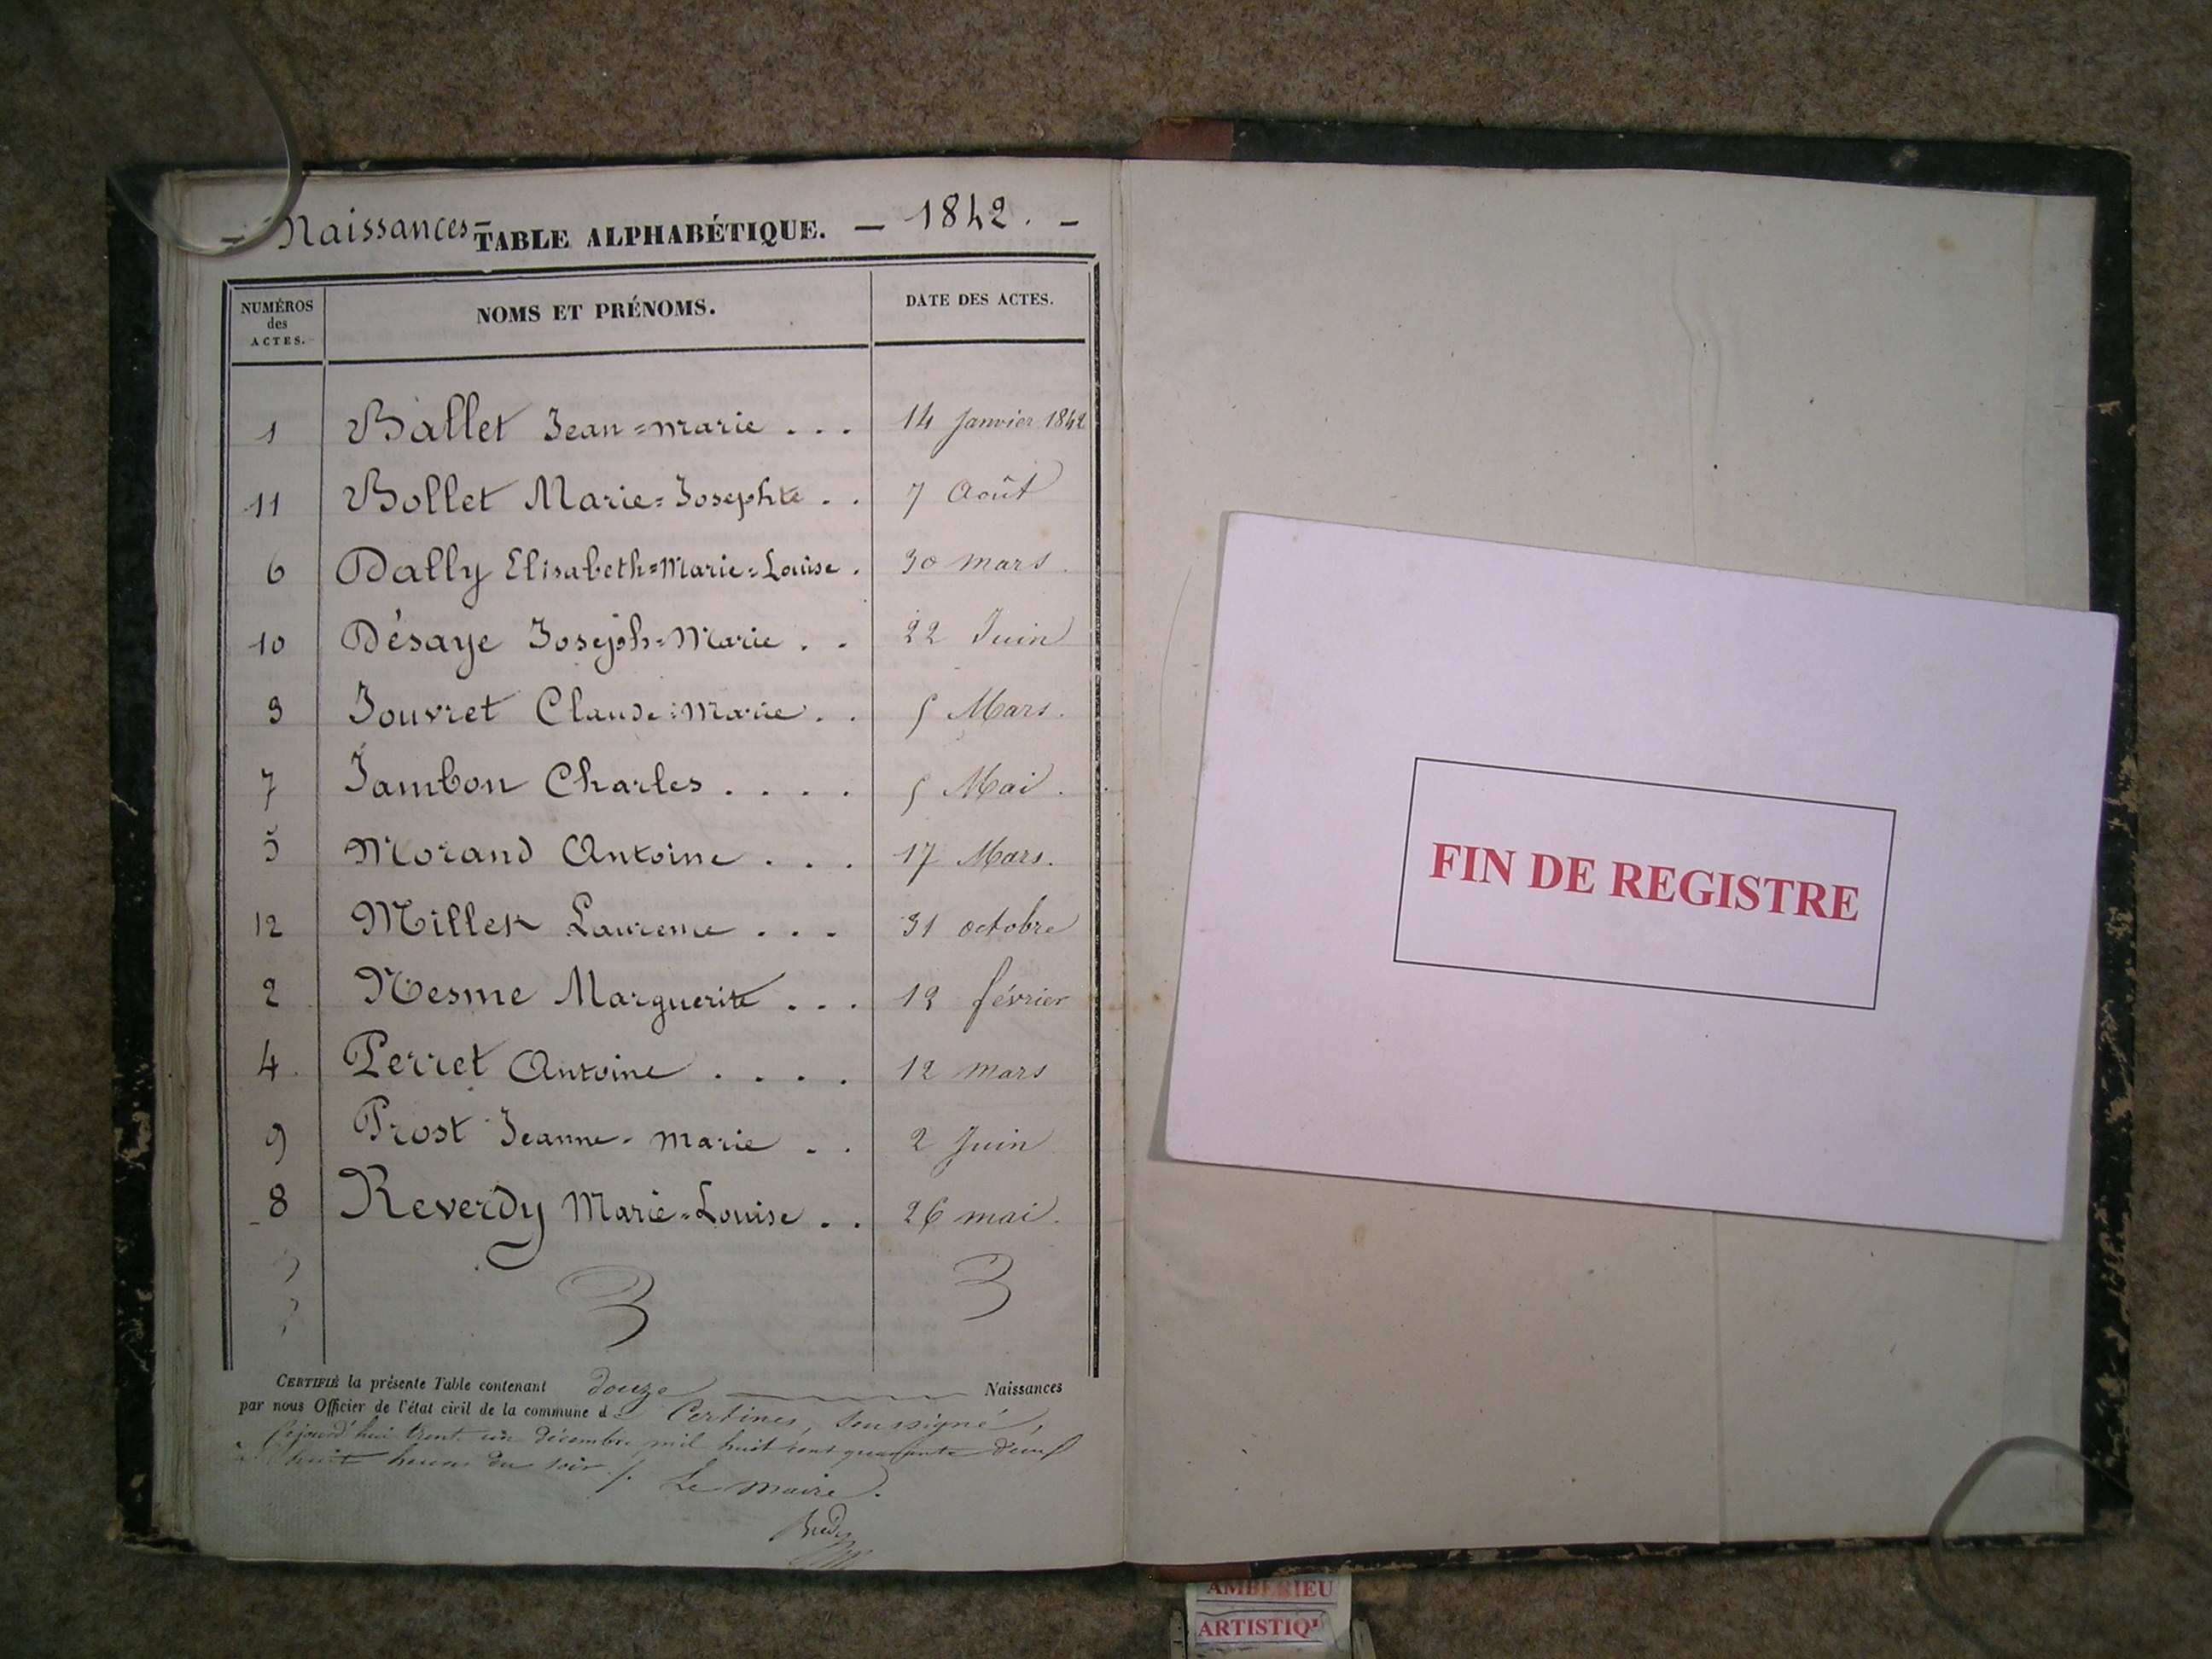 - Naissances - TABLE ALPHABÉTIQUE. - 1842. -
NUMÉROS des ACTES. NOMS ET PRÉNOMS. DATE DES ACTES.
1 Ballet Jean=marie . . . 14 Janvier 1842
11 Bollet Marie=Josephte . . 7 Août
6 Dally Elisabeth=Marie=Louise . 30 mars .
10 Désaye Joseph=Marie . . 22 Juin
3 Jouvret Claude=Marie . . 5 Mars .
7 Jambon Charles . . . . 5 Mai .
5 Morand Antoine . . . 17 Mars .
12 Millet Laurence . . . 31 octobre
2 Nesme Marguerite . . . 12 février
4 Perret Antoine . . . . 12 mars
9 Prost Jeanne-marie . . 2 Juin
8 Reverdy Marie=Louise . . 26 mai .
CERTIFIÉ la présente Table contenant douze Naissances
par nous Officier de l'état civil de la commune de Certines, soussigné,
Cejourd'hui trente un décembre mil huit cent quarante deux
à huit heures du soir ./. Le maire.
FIN DE REGISTRE
AMBERIEU
ARTISTIQU